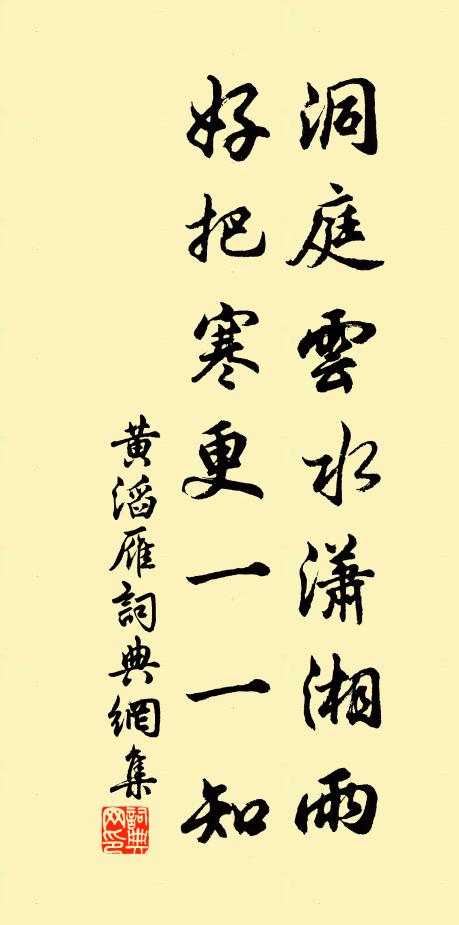 洞庭雲水瀟湘雨
好把寒更一一知
黃滔雁詞典網集
詞典網印